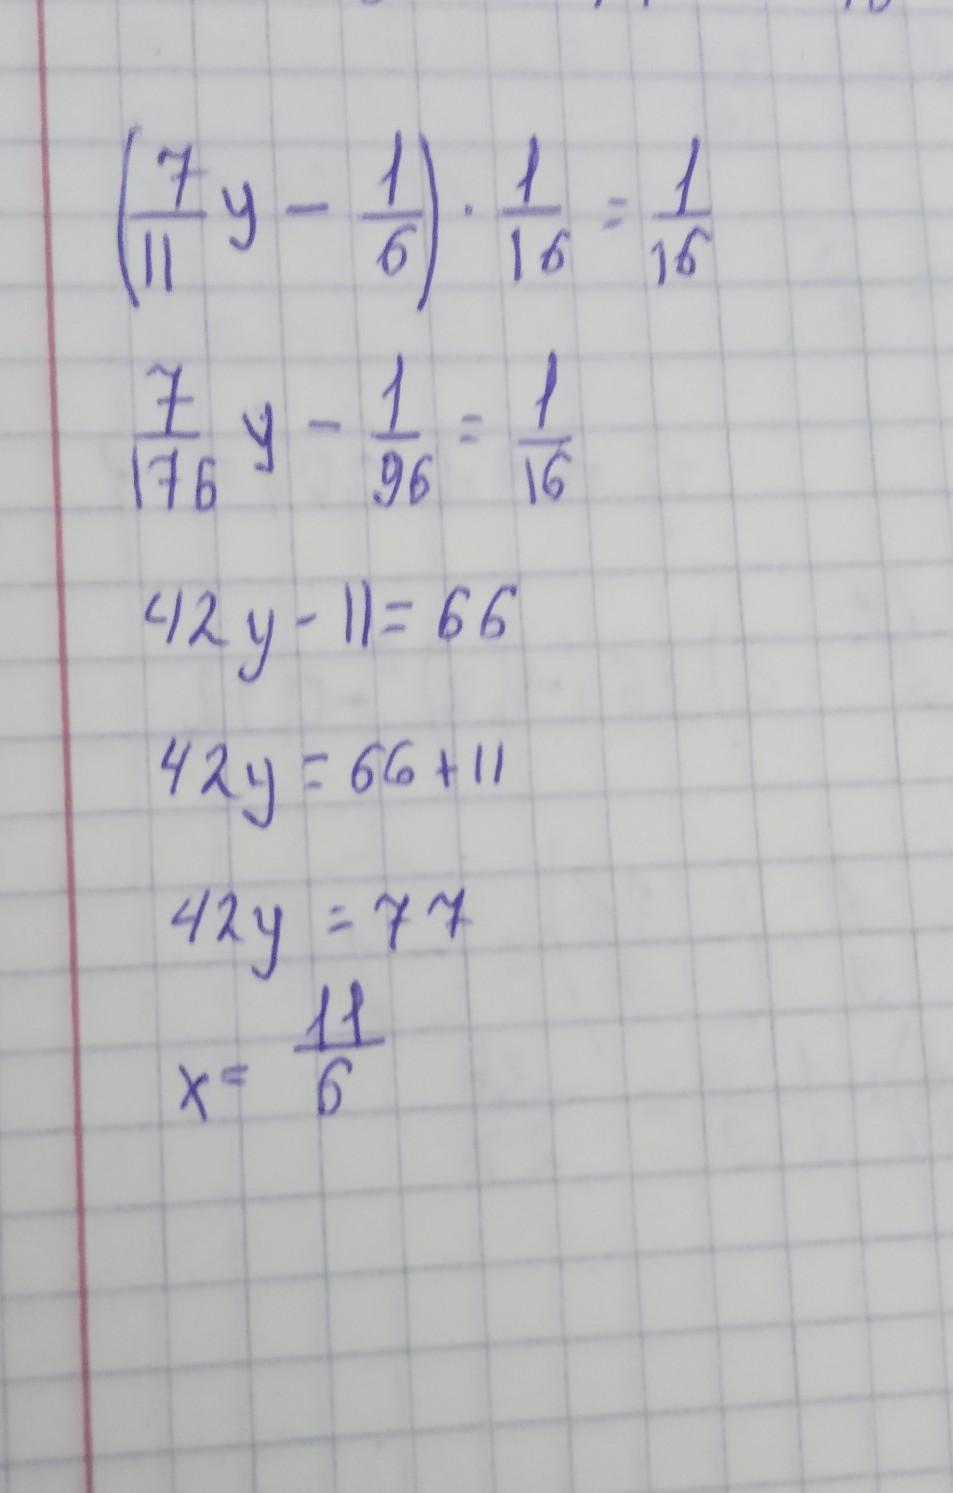 (7/11 y - 1/6) · 1/16 = 1/16
7/176 y - 1/96 = 1/16
42y - 11 = 66
42y = 66 + 11
42y = 77
x = 11/6